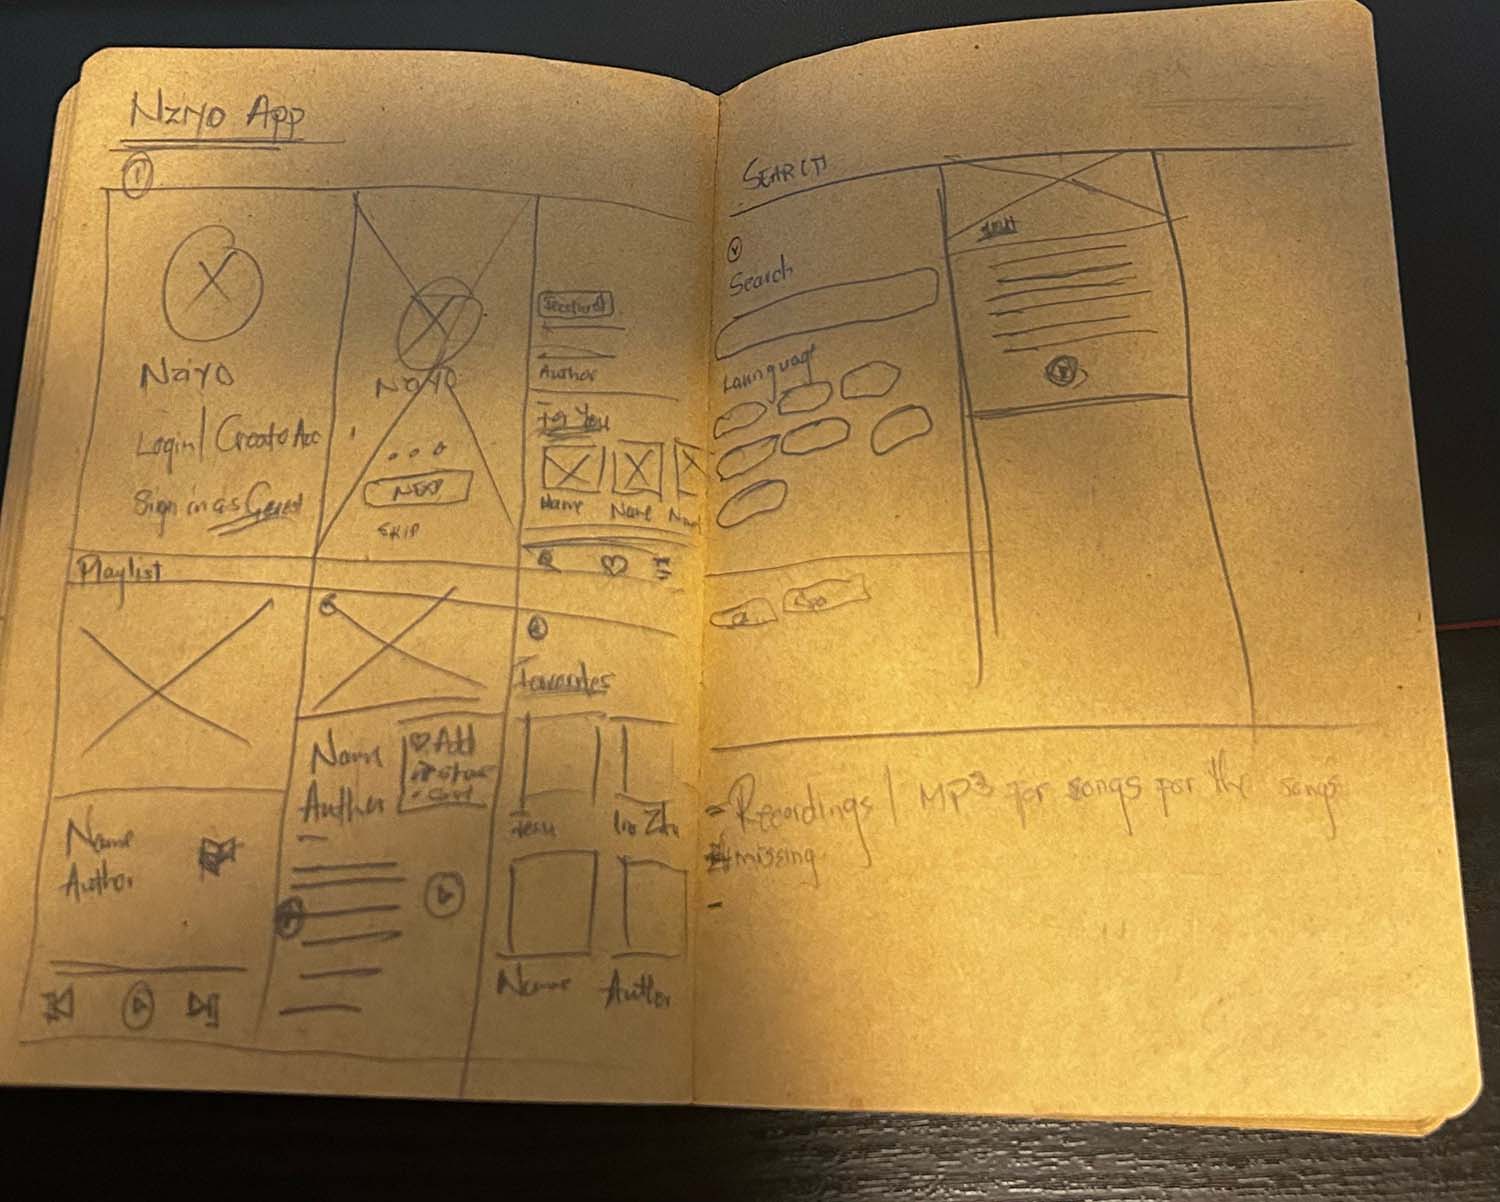 Nziyo App
1
Nziyo
Login / Create Acc
Sign in as Guest
Nziyo
NEXT
SKIP
Featured
Author
For You
Name
Name
Playlist
Name
Author
Name
Author
Add
Favourites
Jesu
Name
Author
SEARCH
Search
Launguage
Go
- Recordings / MP3 for songs for the songs
missing
-